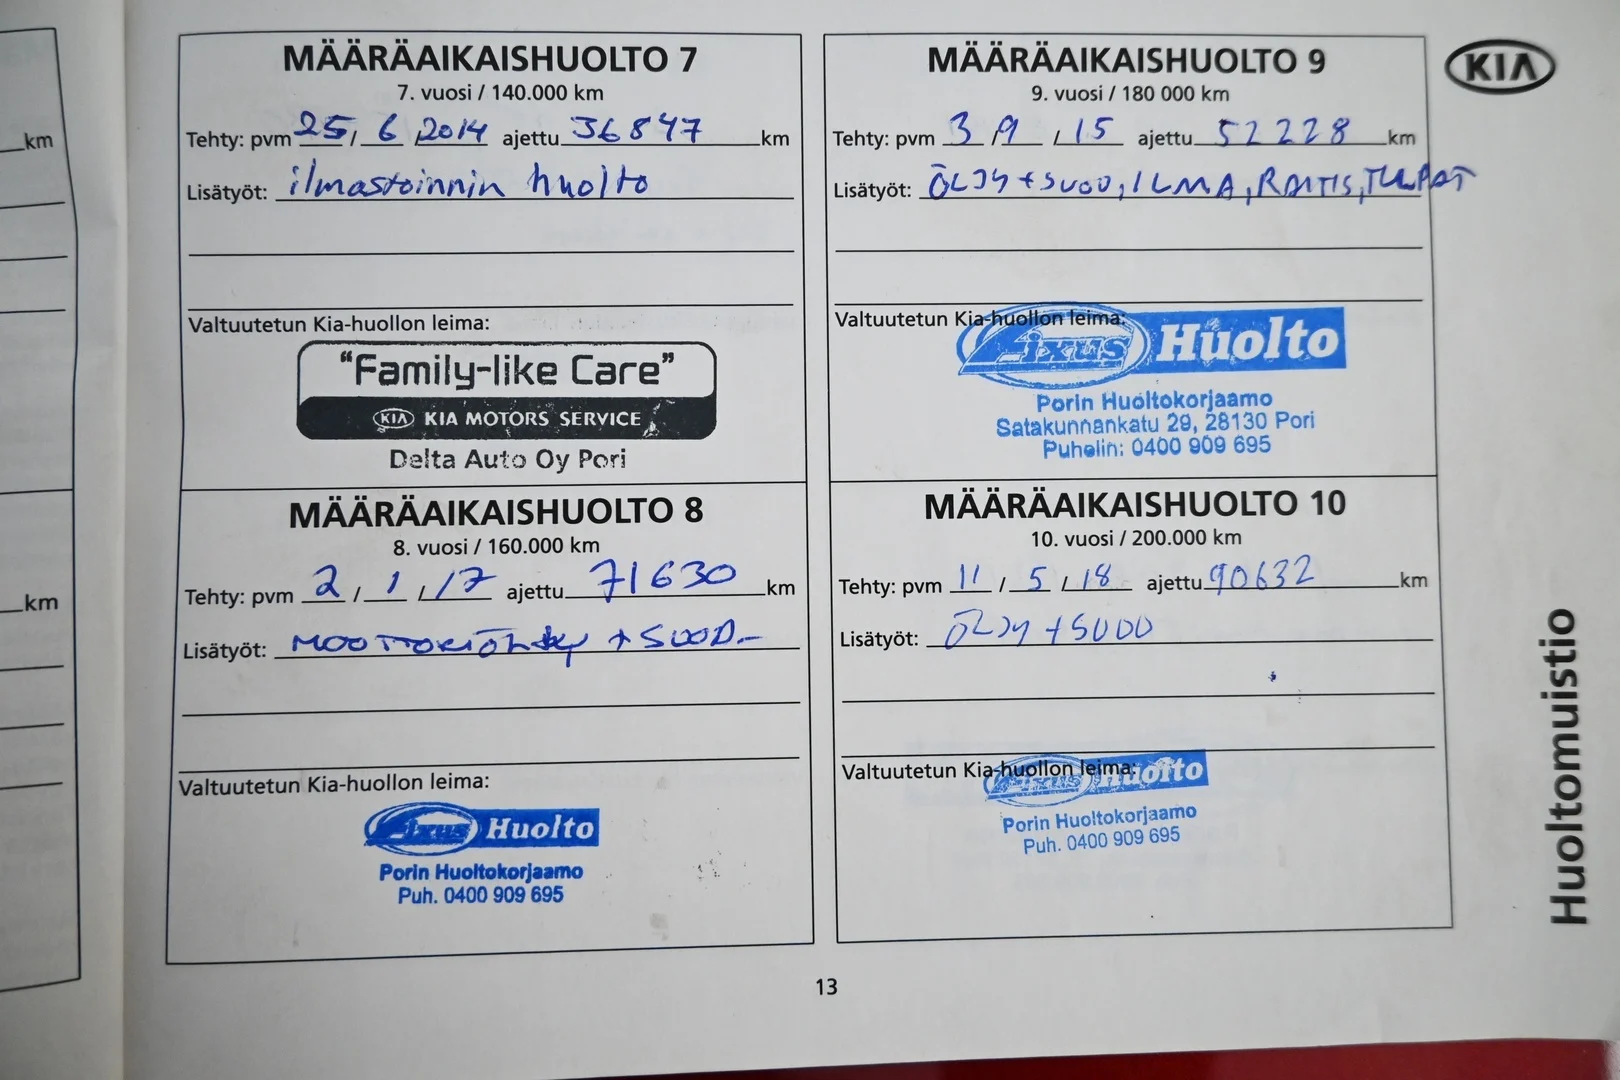 km
km
MÄÄRÄAIKAISHUOLTO 7
7. vuosi / 140.000 km
Tehty: pvm 25 / 6 / 2014 ajettu 36847 km
Lisätyöt: ilmastoinnin huolto
Valtuutetun Kia-huollon leima:
"Family-like Care"
KIA KIA MOTORS SERVICE
Delta Auto Oy Pori
MÄÄRÄAIKAISHUOLTO 8
8. vuosi / 160.000 km
Tehty: pvm 2 / 1 / 17 ajettu 71630 km
Lisätyöt: MOOTTORIÖLJY + SUOD.
Valtuutetun Kia-huollon leima:
Fixus Huolto
Porin Huoltokorjaamo
Puh. 0400 909 695
MÄÄRÄAIKAISHUOLTO 9
9. vuosi / 180 000 km
Tehty: pvm 3 / 9 / 15 ajettu 52228 km
Lisätyöt: ÖLJY + SUOD, ILMA, RAITIS, TULPAT
Valtuutetun Kia-huollon leima:
Fixus Huolto
Porin Huoltokorjaamo
Satakunnankatu 29, 28130 Pori
Puhelin: 0400 909 695
MÄÄRÄAIKAISHUOLTO 10
10. vuosi / 200.000 km
Tehty: pvm 11 / 5 / 18 ajettu 90632 km
Lisätyöt: ÖLJY + SUOD
Valtuutetun Kia-huollon leima:
Fixus Huolto
Porin Huoltokorjaamo
Puh. 0400 909 695
KIA
Huoltomuistio
13